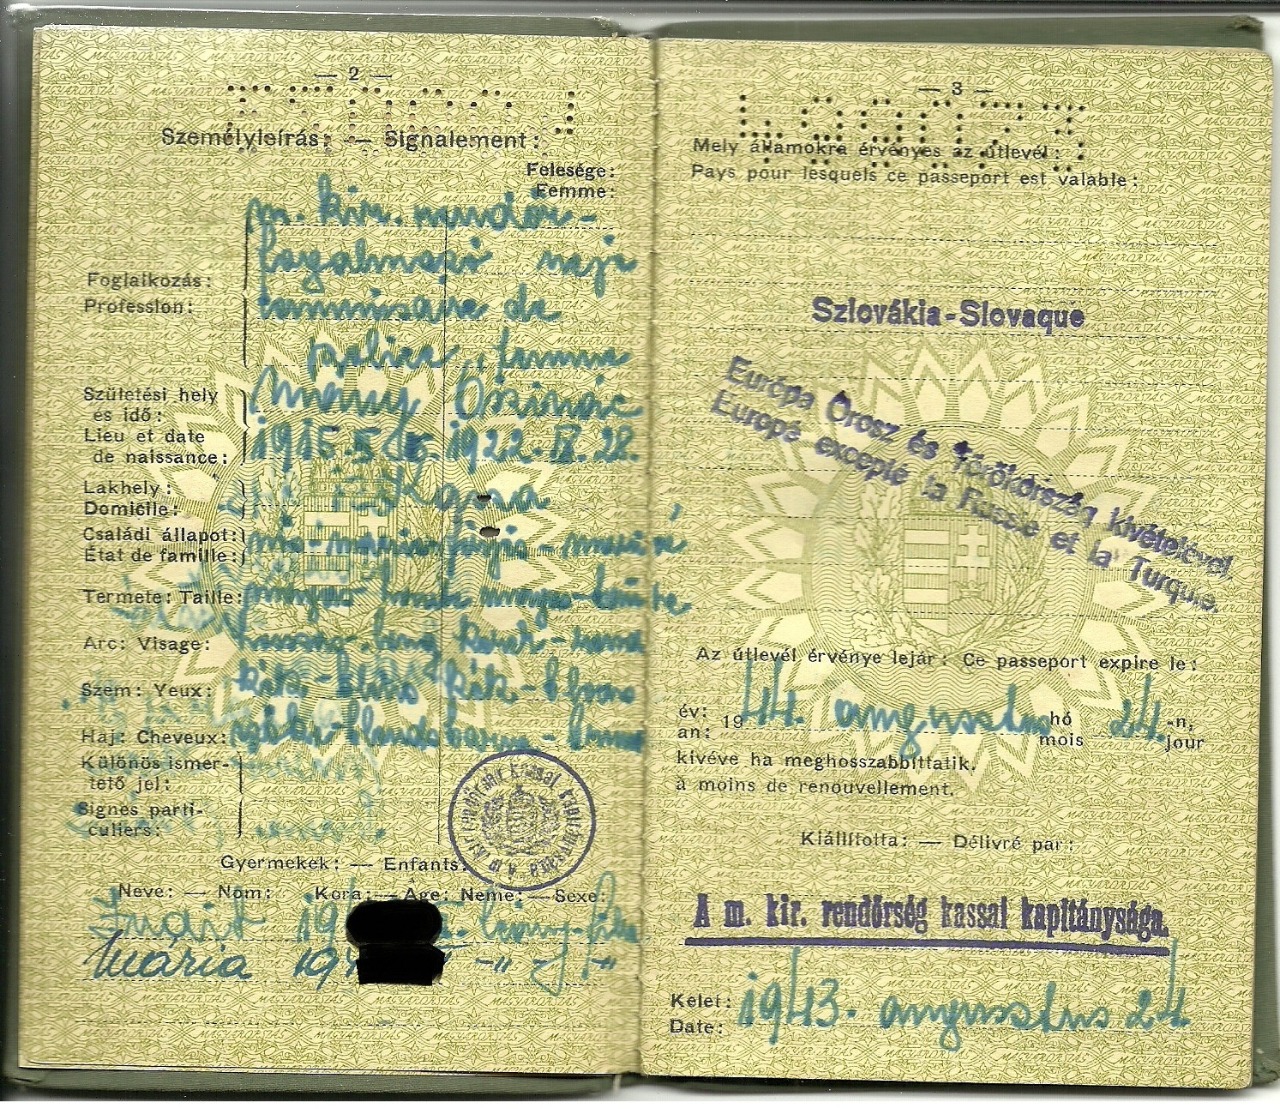 — 2 —
Személyleírás: — Signalement:
Felesége:
Femme:
m. kir. rendőr-
fogalmazó neje
Foglalkozás:
Profession:
commissaire de
police, femme
Születési hely
és idő:
Lieu et date
de naissance:
Mány
1915. 5. 1922. IX. 28.
Lakhely:
Domicile:
Kassa
Családi állapot:
État de famille:
Termete: Taille:
Arc: Visage:
Szem: Yeux:
kék - bleus kék - bleus
Haj: Cheveux:
Különös ismer-
tető jel:
Signes parti-
culiers:
A m. kir. rendőrség kassai kapitánysága
Gyermekek: — Enfants:
Neve: — Nom: Kora: — Âge: Neme: — Sexe:
Judit 19 leány-fille
Mária 194 -„- -„-
— 3 —
Mely államokra érvényes az útlevél:
Pays pour lesquels ce passeport est valable:
Szlovákia-Slovaque
Európa Orosz és Törökország kivételével.
Europé excepté la Russie et la Turquie.
Az útlevél érvénye lejár: Ce passeport expire le:
év: 1944. augusztus hó 24. -n,
an: mois jour
kivéve ha meghosszabbíttatik.
à moins de renouvellement.
Kiállította: — Délivré par:
A m. kir. rendőrség kassai kapitánysága.
Kelet: 1943. augusztus 24.
Date: